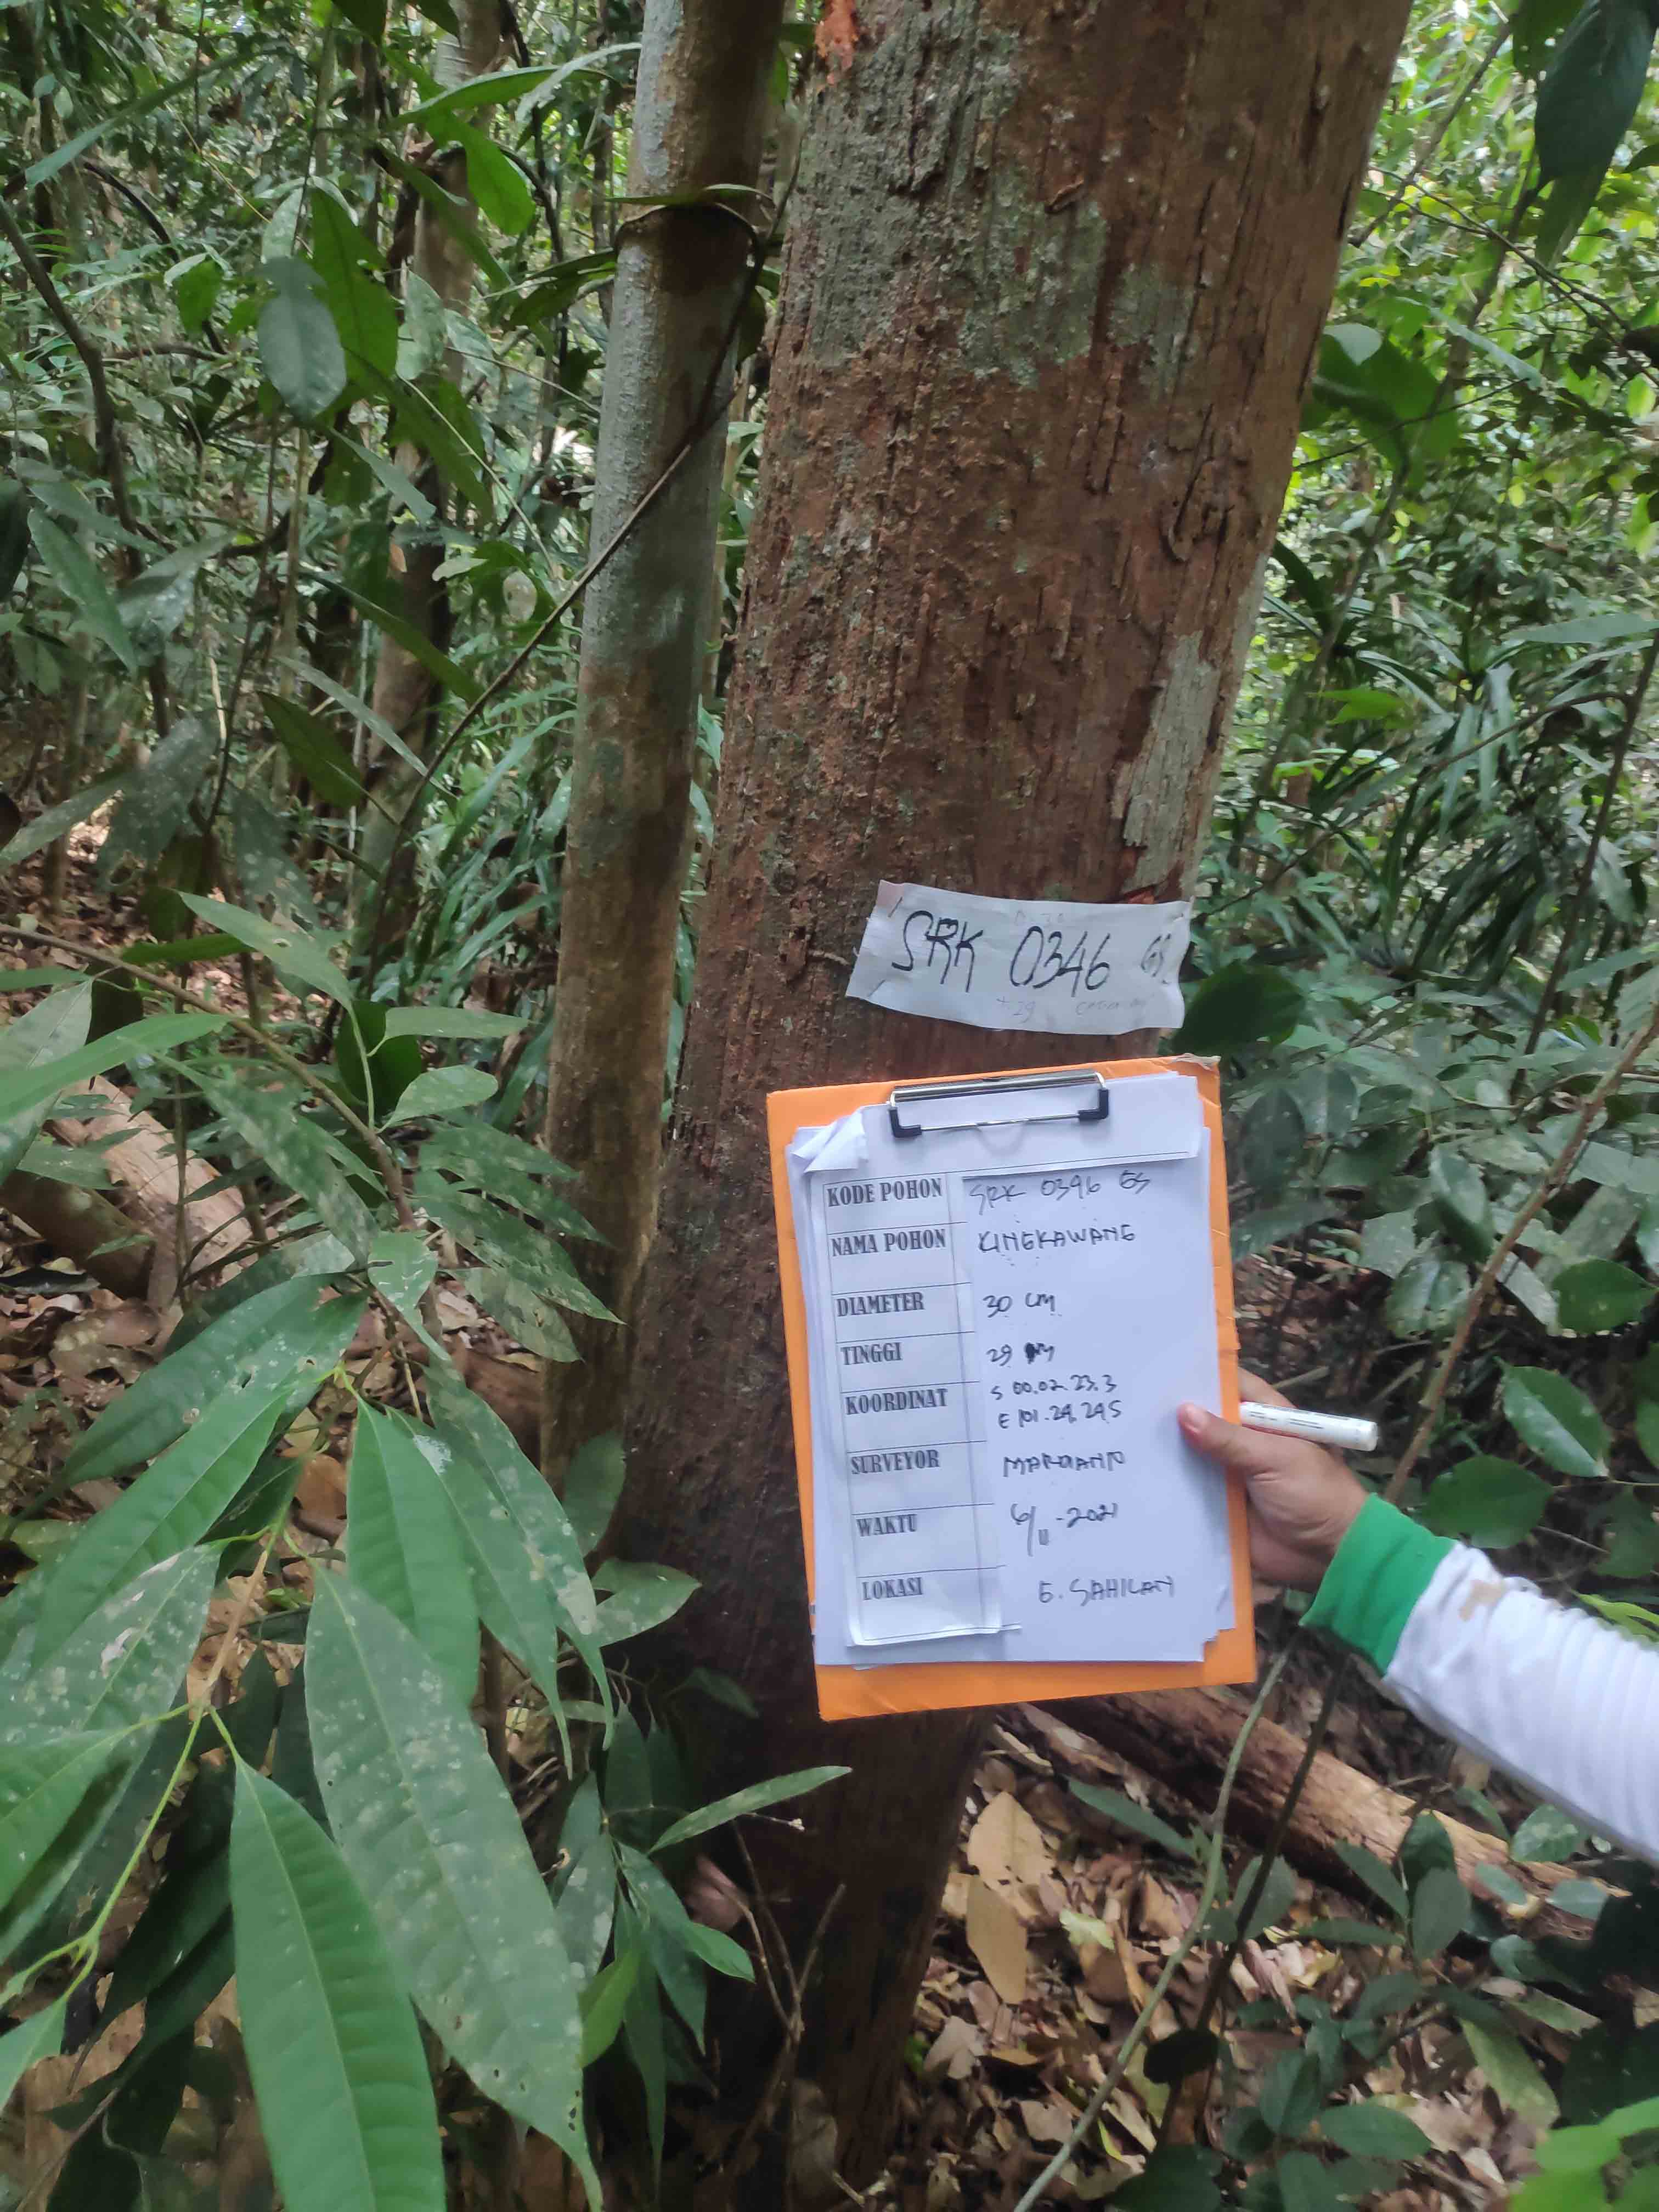 SRK 0346 GS
KODE POHON SRK 0346 GS
NAMA POHON KINGKAWANG
DIAMETER 30 CM
TINGGI 29 M
KOORDINAT S 00.02.23.3
E 101.24.24,5
SURVEYOR
WAKTU 6/11-2021
LOKASI G. SAHILAN